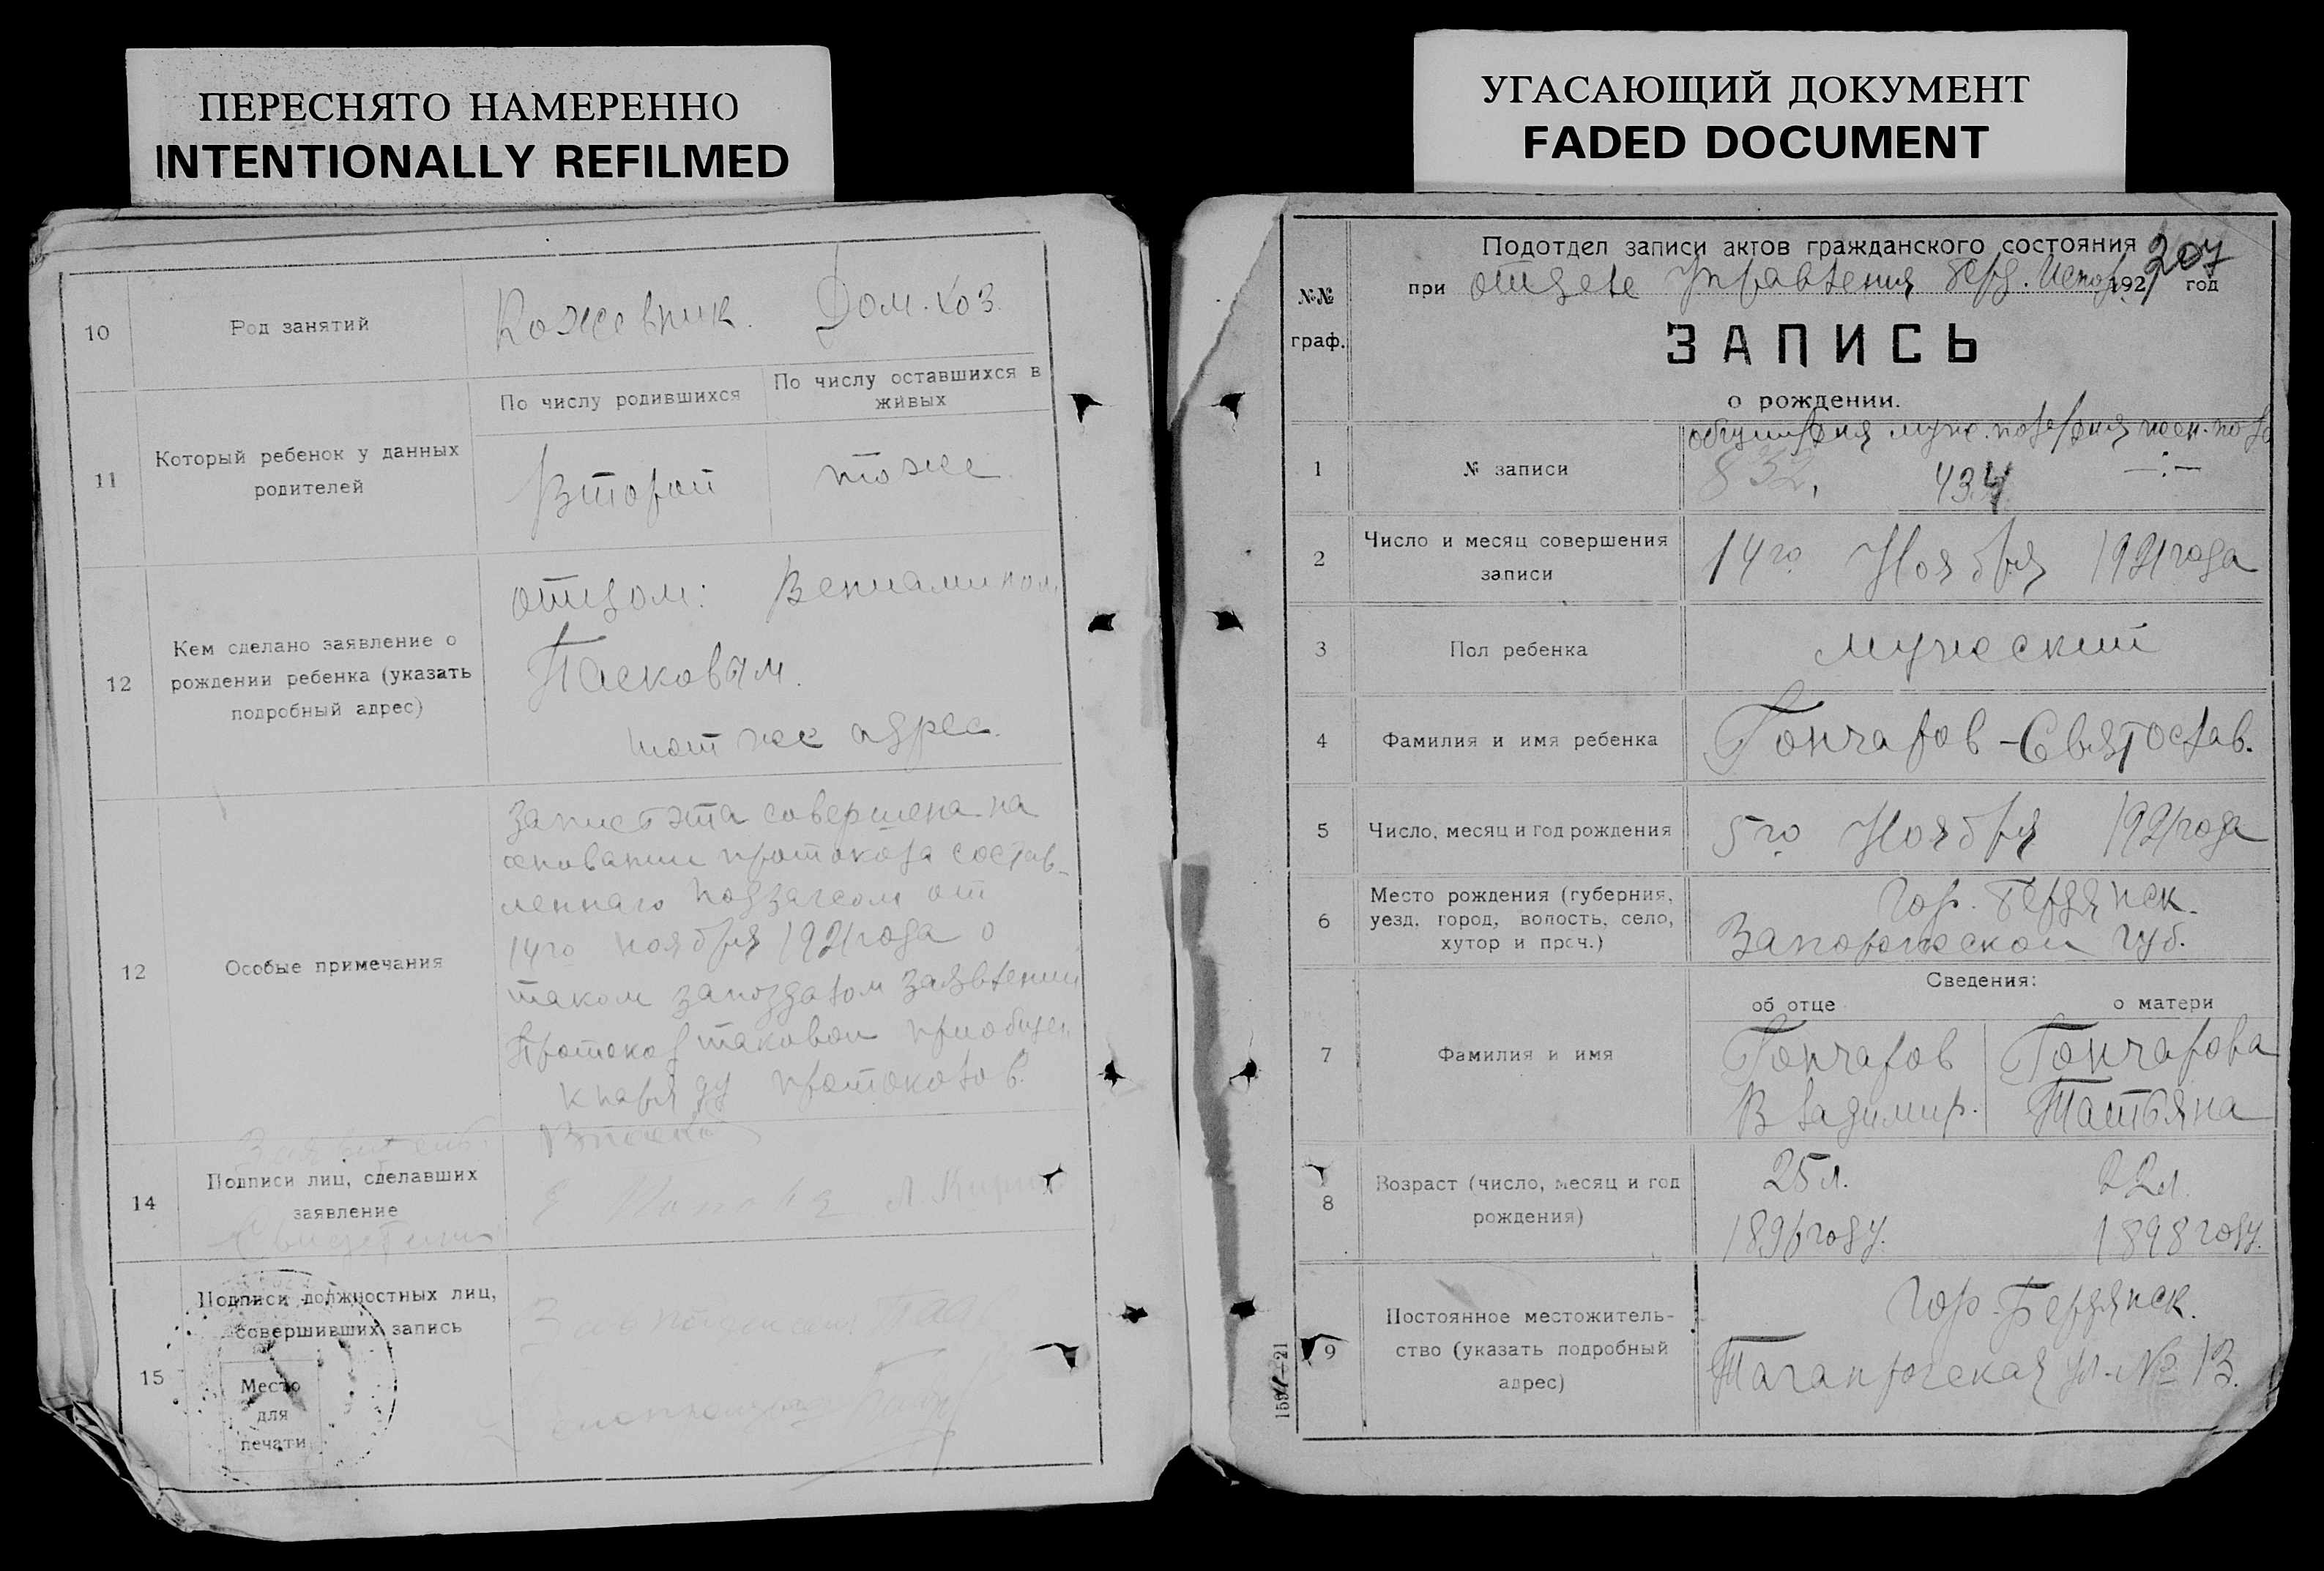 ПЕРЕСНЯТО НАМЕРЕННО
INTENTIONALLY REFILMED
10
Род занятий
Кожевник.
Дом. хоз.
11
Который ребенок у данных
родителей
По числу родившихся
По числу оставшихся в
живых
Второй
тоже
12
Кем сделано заявление о
рождении ребенка (указать
подробный адрес)
отцом: Вениамином
Пасковым.
тот же адрес.
12
Особые примечания
Запись эта совершена на
основании протокола состав-
леннаго подзагсом от
14го ноября 1921 года о
таком запоздалом заявлении
Протокол таковой приобщен
к наряду протоколов.
14
Подписи лиц, сделавших
заявление
15
Подписи должностных лиц,
совершивших запись
Место
для
печати
УГАСАЮЩИЙ ДОКУМЕНТ
FADED DOCUMENT
207
№№
граф.
Подотдел записи актов гражданского состояния
при отделе Управления Берд. Испол. 1921 год
ЗАПИСЬ
о рождении.
1
№ записи
832, 434 —:—
2
Число и месяц совершения
записи
14го Ноября 1921 года
3
Пол ребенка
мужеский
4
Фамилия и имя ребенка
Гончаров - Святослав.
5
Число, месяц и год рождения
5го Ноября 1921 года
6
Место рождения (губерния,
уезд, город, волость, село,
хутор и проч.)
гор. Бердянск.
Запорожской губ.
Сведения:
об отце
о матери
7
Фамилия и имя
Гончаров
Владимир.
Гончарова
Татьяна
8
Возраст (число, месяц и год
рождения)
25 л.
1896 году.
22 л.
1898 году.
9
Постоянное местожитель-
ство (указать подробный
адрес)
гор. Бердянск.
Таганрогская ул. № 13.